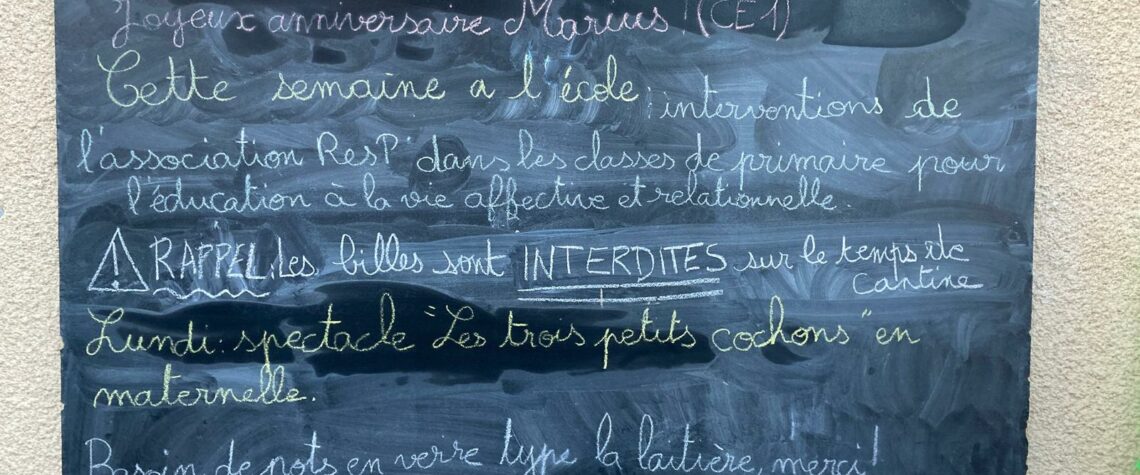 Joyeux anniversaire Marius ! (CE1)
Cette semaine a l'école : interventions de
l'association ResP' dans les classes de primaire pour
l'éducation à la vie affective et relationnelle.
⚠ RAPPEL : Les billes sont INTERDITES sur le temps de
cantine
Lundi : spectacle "Les trois petits cochons" en
maternelle.
Besoin de pots en verre type la laitière, merci !